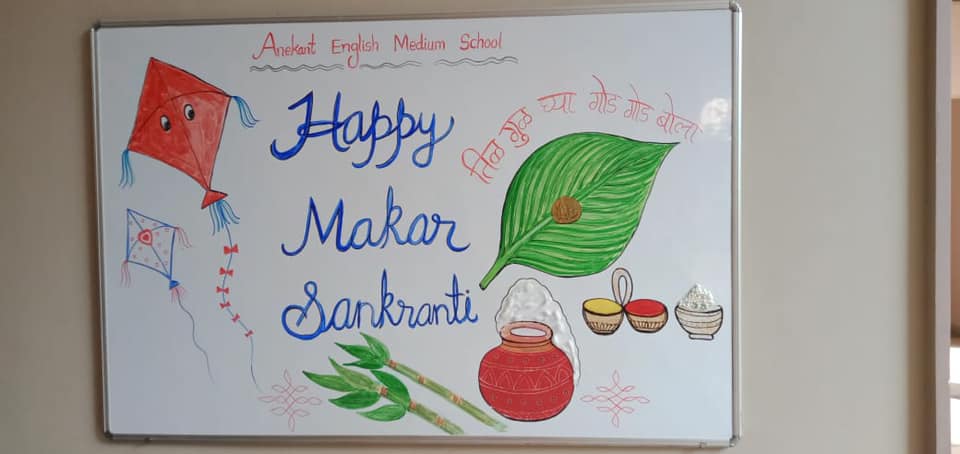 Anekant English Medium School
Happy
Makar
Sankranti
तिळ गुळ घ्या गोड गोड बोला